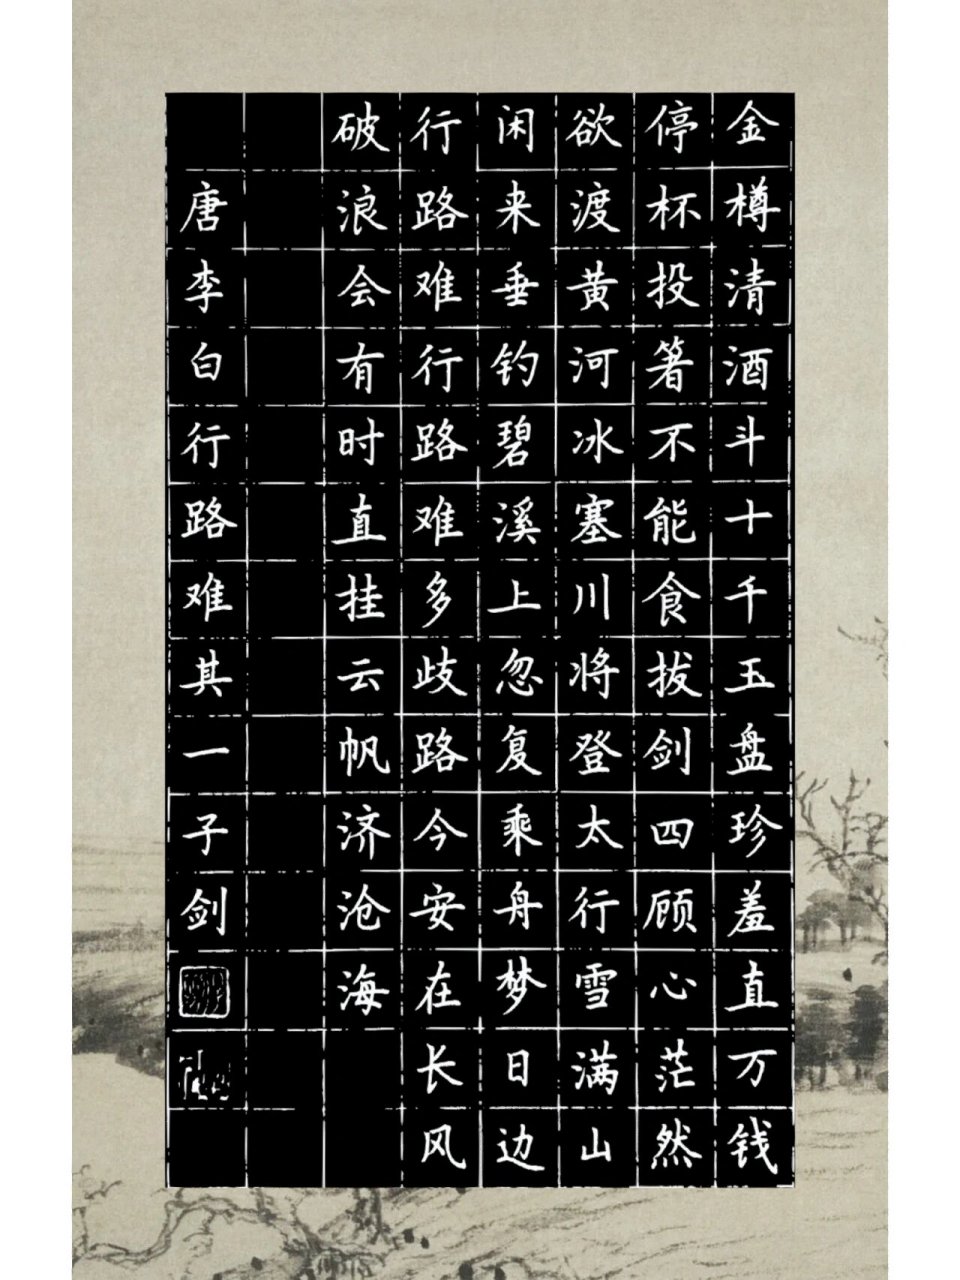 金樽清酒斗十千玉盘珍羞直万钱
停杯投箸不能食拔剑四顾心茫然
欲渡黄河冰塞川将登太行雪满山
闲来垂钓碧溪上忽复乘舟梦日边
行路难行路难多歧路今安在长风
破浪会有时直挂云帆济沧海
唐李白行路难其一子剑